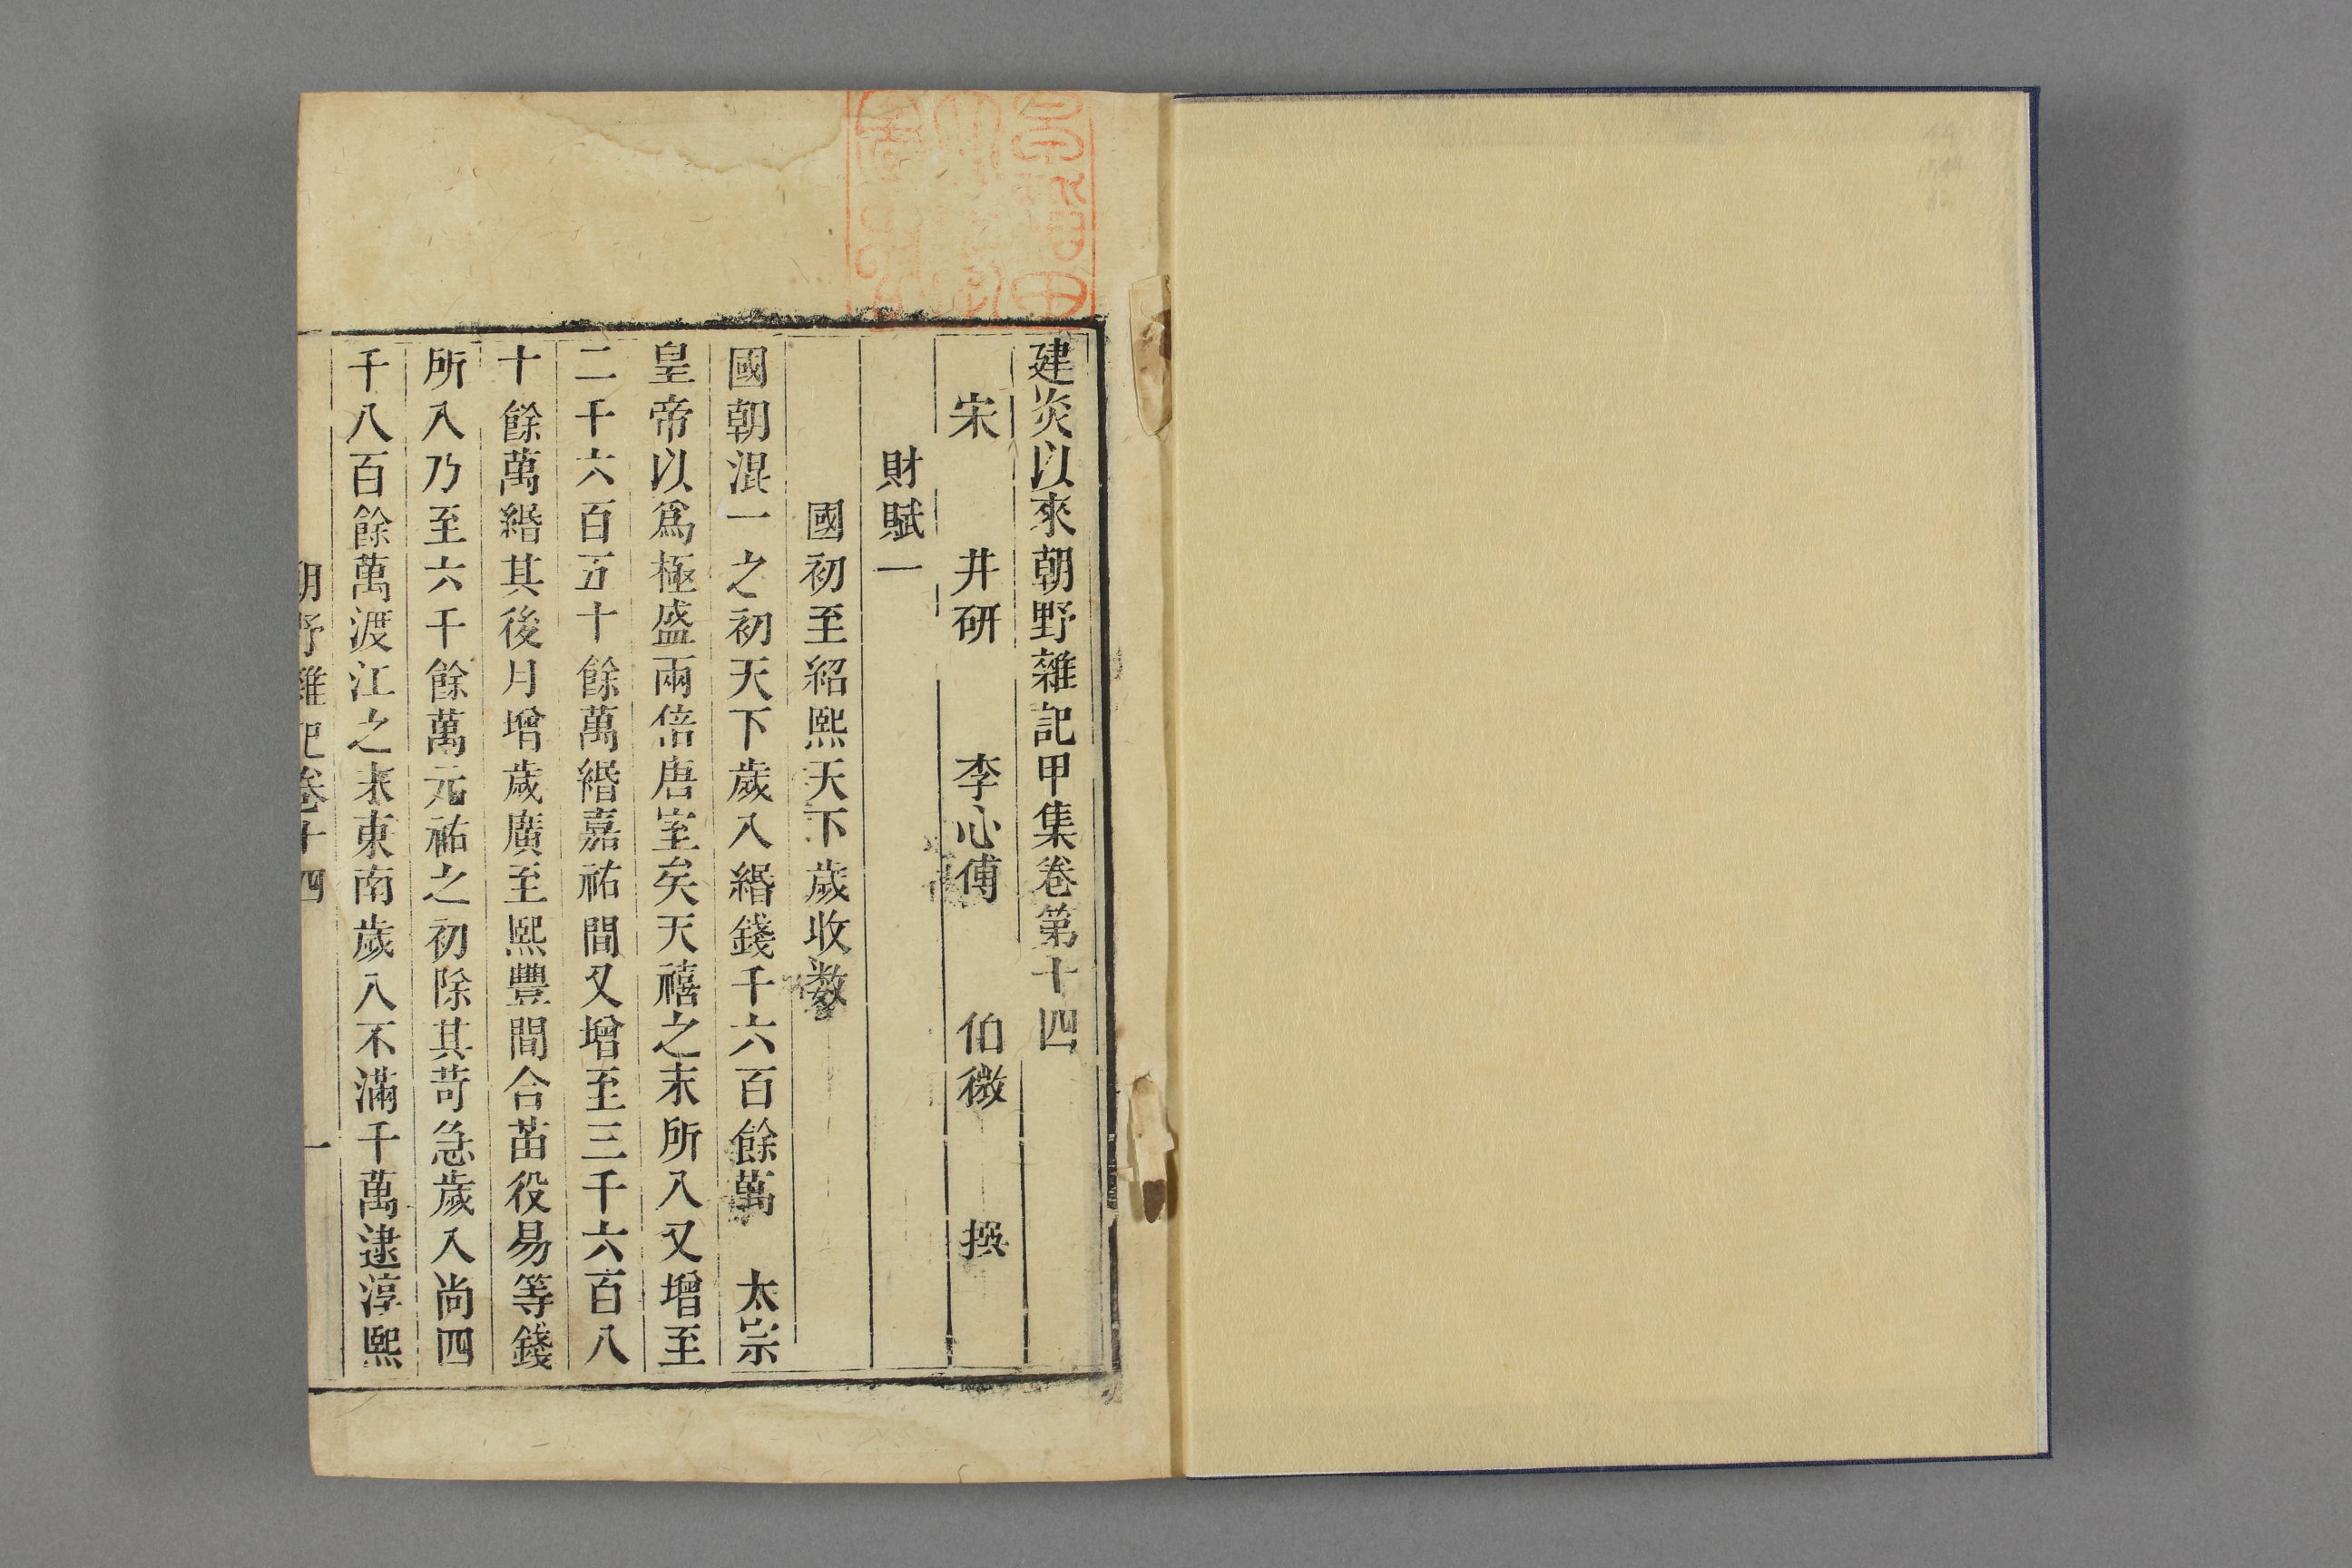 建炎以來朝野雜記甲集卷第十四
宋 井研 李心傳 伯微 撰
財賦一
國初至紹熙天下歲收数
國朝混一之初天下歲入緡錢千六百餘萬 太宗
皇帝以爲極盛兩倍唐室矣天禧之末所入又增至
二千六百五十餘萬緡嘉祐間又增至三千六百八
十餘萬緡其後月增歲廣至熙豐間合苗役易等錢
所入乃至六千餘萬元祐之初除其苛急歲入尚四
千八百餘萬渡江之末東南歲入不滿千萬逮淳熙
朝野雜記卷十四 一